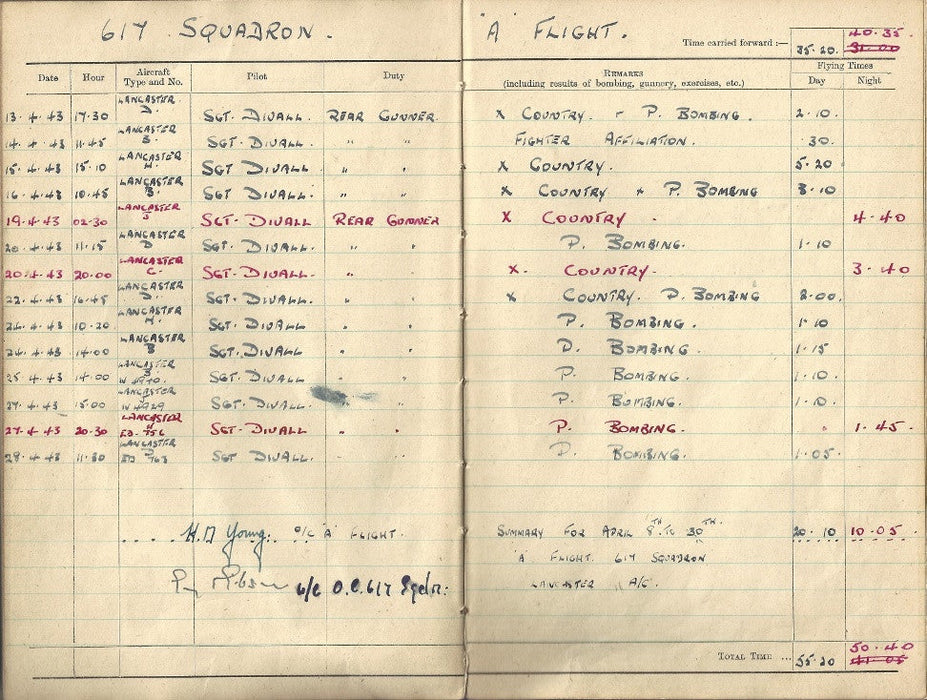 617 SQUADRON. "A" FLIGHT.
Time carried forward :— 35.20. 40.35. 31.00
Date Hour Aircraft Type and No. Pilot Duty REMARKS (including results of bombing, gunnery, exercises, etc.) Flying Times Day Night
13.4.43 17.30 LANCASTER D. SGT. DIVALL. REAR GUNNER. X COUNTRY. + P. BOMBING. 2.10.
14.4.43 11.45 LANCASTER B. SGT. DIVALL. " " FIGHTER AFFILIATION. .30.
15.4.43 15.10 LANCASTER H. SGT DIVALL. " " X COUNTRY. 5.20
16.4.43 10.45 LANCASTER B. SGT DIVALL. " " X COUNTRY + P. BOMBING 3.10
19.4.43 02.30 LANCASTER J SGT. DIVALL REAR GUNNER X COUNTRY. 4.40
20.4.43 11.15 LANCASTER D SGT. DIVALL. " " P. BOMBING. 1.10
20.4.43 20.00 LANCASTER C. SGT. DIVALL. " " X. COUNTRY. 3.40
22.4.43 16.45 LANCASTER D. SGT. DIVALL. " " X COUNTRY. P. BOMBING 2.00.
24.4.43 10.20 LANCASTER H. SGT. DIVALL " " P. BOMBING. 1.10
24.4.43 14.00 LANCASTER B SGT. DIVALL " " P. BOMBING. 1.15
25.4.43 14.00 LANCASTER W 4940. SGT. DIVALL " " P. BOMBING. 1.10.
27.4.43 15.00 LANCASTER J W 4929 SGT. DIVALL " P. BOMBING. 1.10.
27.4.43 20.30 LANCASTER H ED. 756 SGT. DIVALL " " P. BOMBING. 1.45.
29.4.43 11.30 LANCASTER ED 763 SGT DIVALL. " " P. BOMBING. 1.05.
.... H.M Young. O/C "A" FLIGHT. SUMMARY FOR APRIL 8TH TO 30TH. 20.10 10.05.
"A" FLIGHT. 617 SQUADRON
G P Gibson W/C O.C. 617 Sqdn: LANCASTER A/C.
TOTAL TIME ... 55.20 50.40 41.05